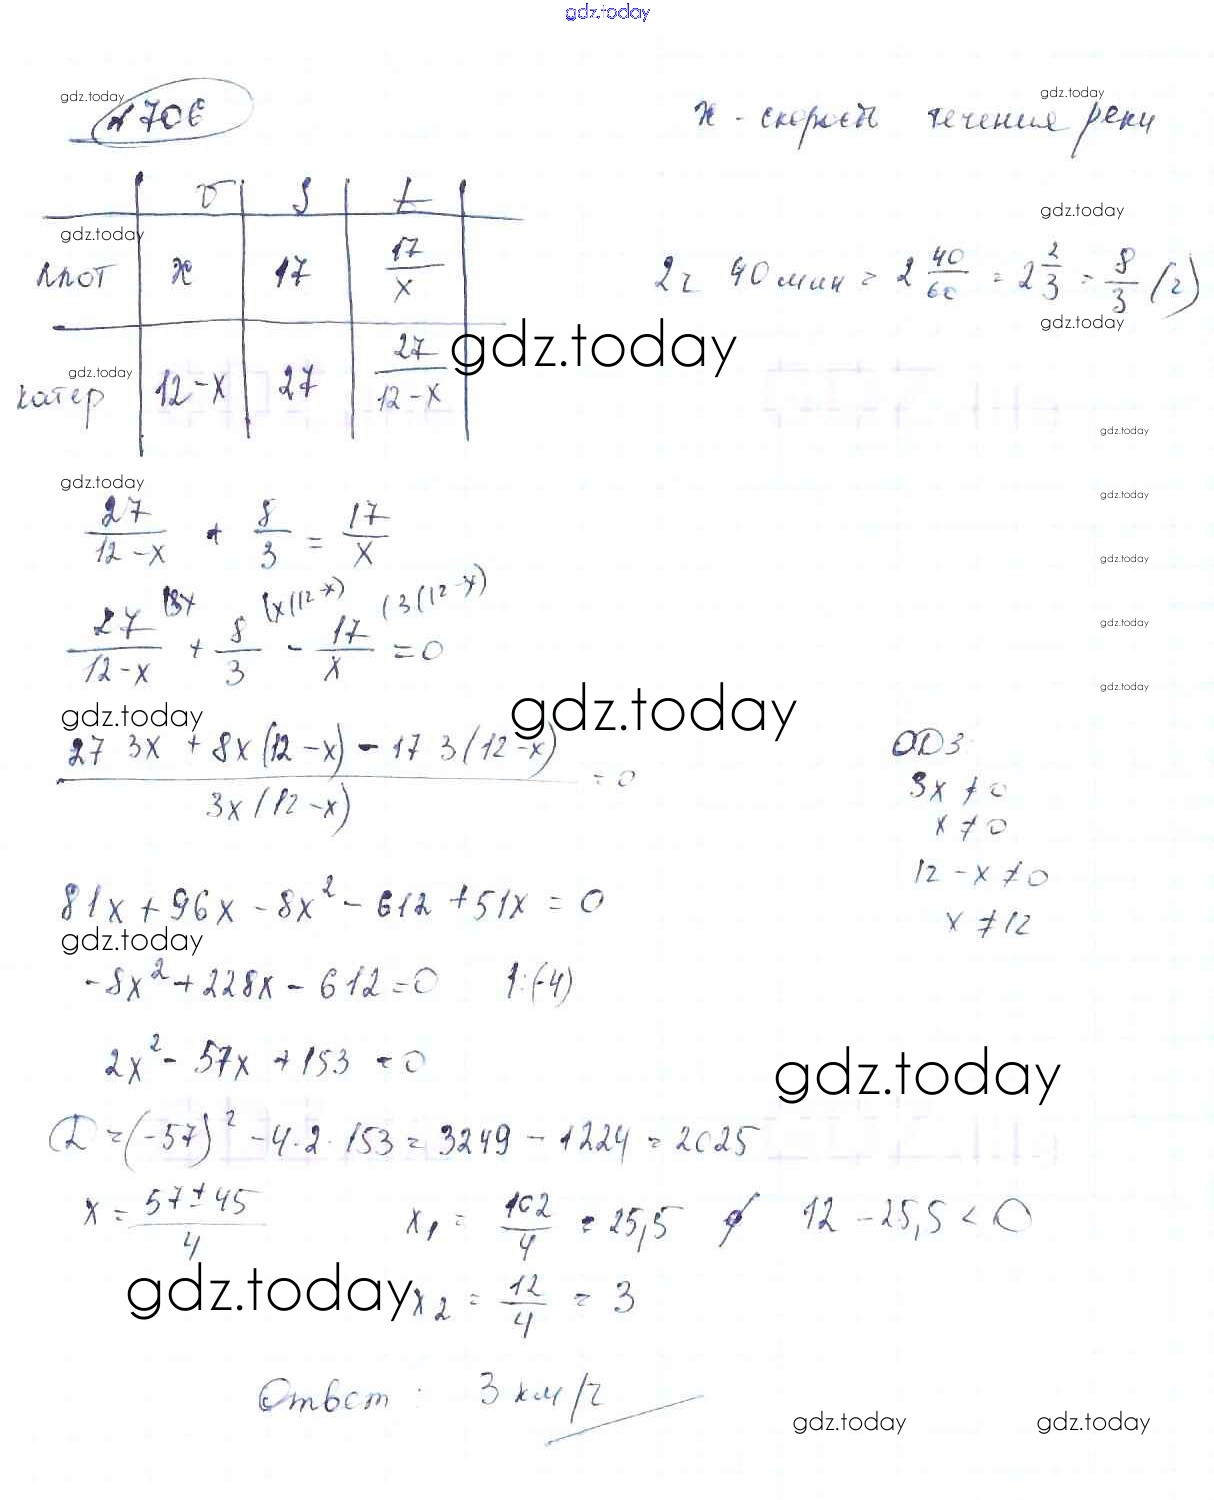 gdz.today
gdz.today
№706
gdz.today
x - скорость течения реки
v S t
gdz.today
gdz.today
плот x 17 17/x
2ч 40мин = 2 40/60 = 2 2/3 = 8/3 (ч)
gdz.today
gdz.today
gdz.today
катер 12-x 27 27/(12-x)
gdz.today
gdz.today
gdz.today
27/(12-x) + 8/3 = 17/x
gdz.today
27/(12-x) (3x + 8/3 (x(12-x) - 17/x (3(12-x) = 0
gdz.today
gdz.today
gdz.today
gdz.today
(27 3x + 8x(12-x) - 17 3(12-x))/(3x(12-x)) = 0
ОДЗ:
3x ≠ 0
x ≠ 0
12 - x ≠ 0
x ≠ 12
81x + 96x - 8x² - 612 + 51x = 0
gdz.today
-8x² + 228x - 612 = 0 |:(-4)
2x² - 57x + 153 = 0
gdz.today
D = (-57)² - 4·2·153 = 3249 - 1224 = 2025
x = (57 ± 45)/4 x₁ = 102/4 = 25,5 12 - 25,5 < 0
gdz.today
x₂ = 12/4 = 3
Ответ: 3 км/ч
gdz.today gdz.today